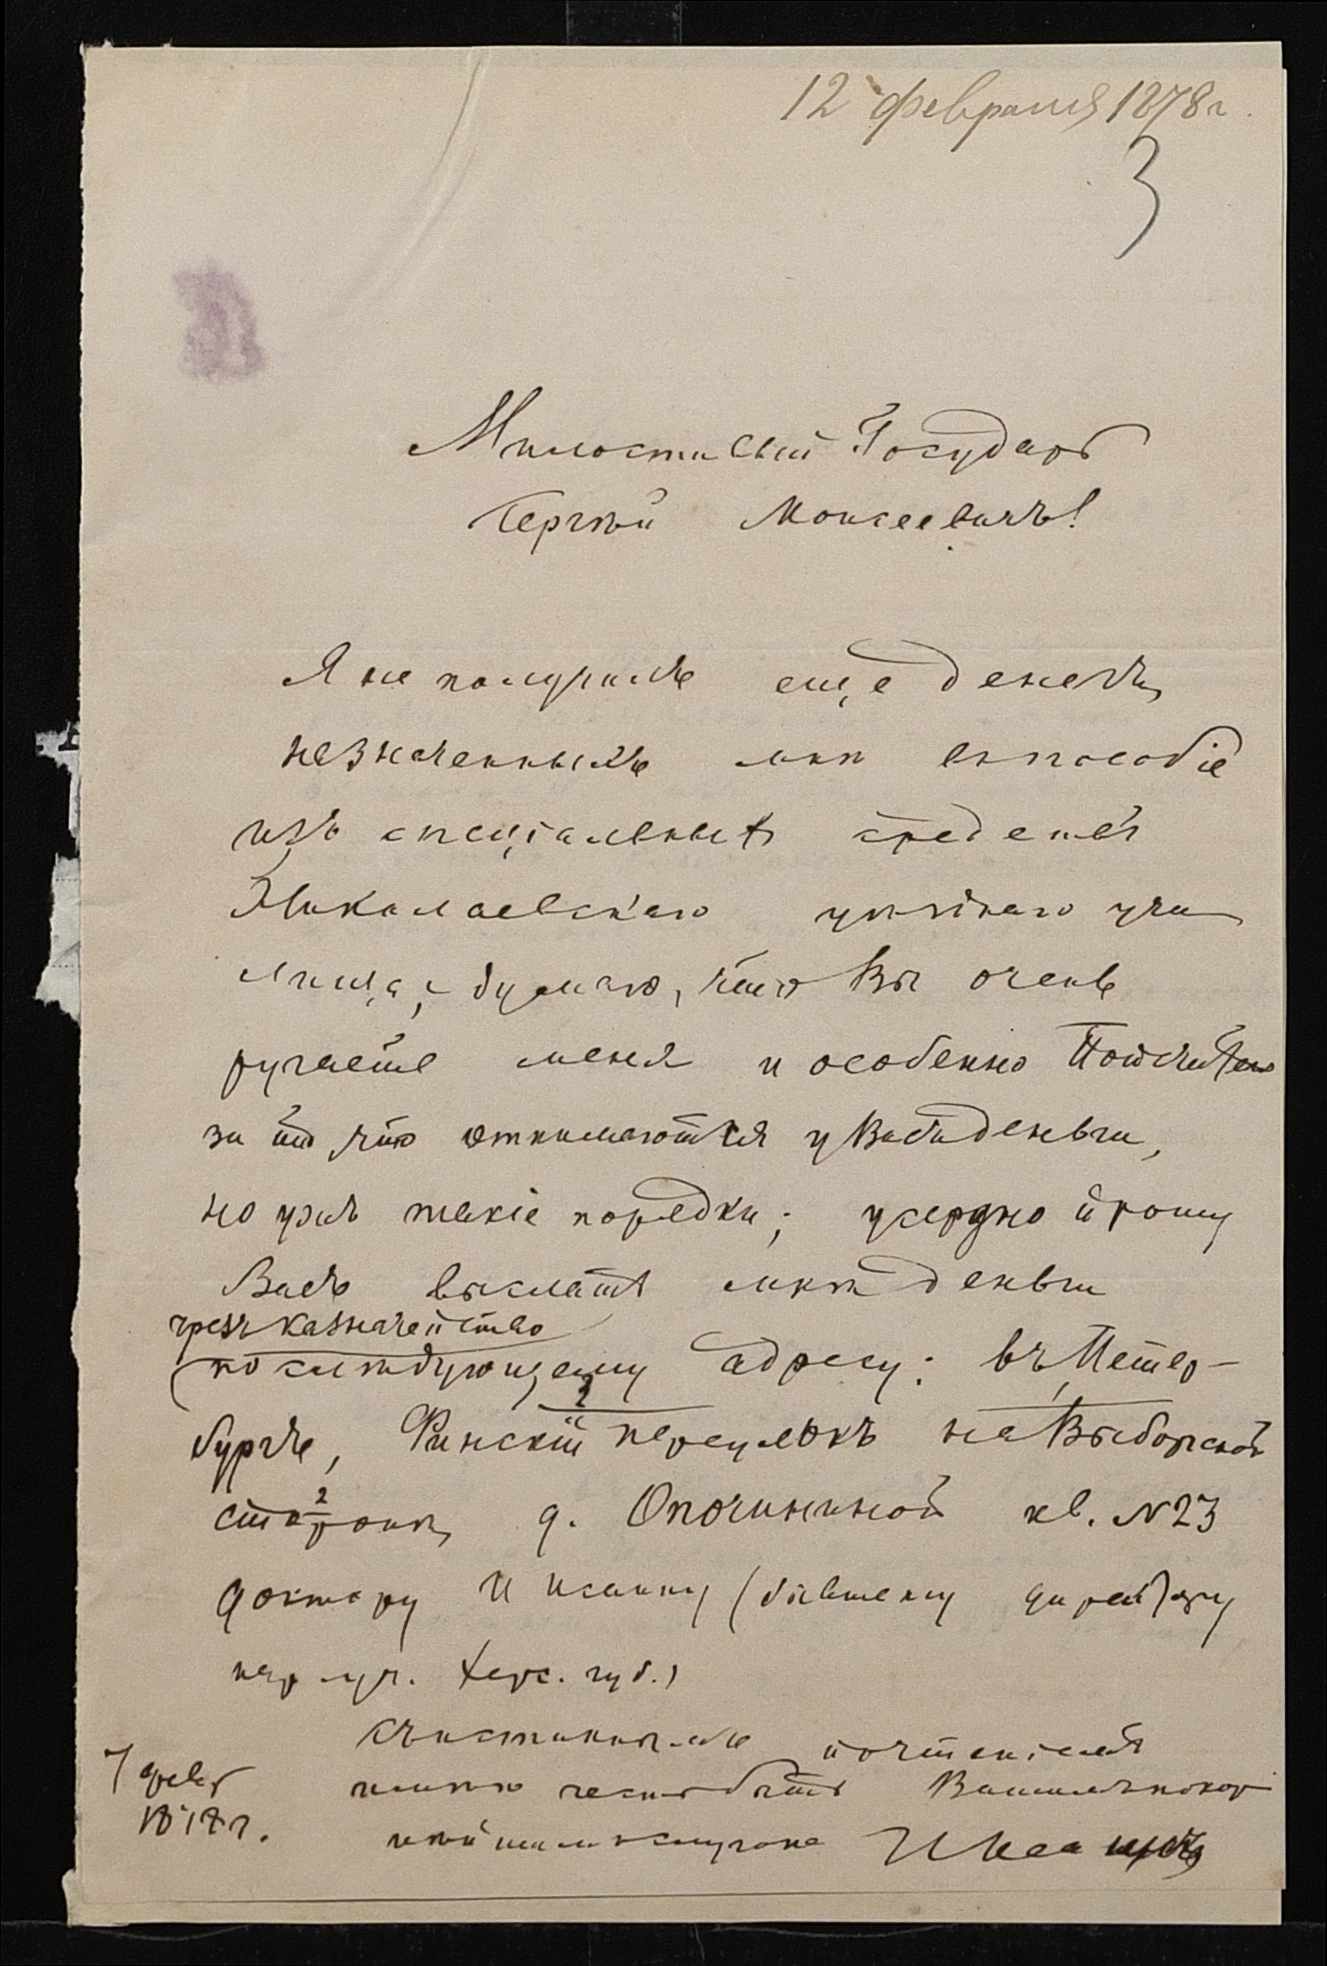 12 февраля 1878 г.
3
Милостивый Государь
Сергѣй Моисеевичъ!
Я не получилъ еще денегъ,
назначенныхъ мнѣ въ пособіе
изъ спеціальныхъ средствъ
Николаевскаго уѣзднаго учи
лища, думаю, что Вы очень
ругаете меня и особенно
за то что отнимаются у Васъ деньги,
но ужъ такіе порядки; усердно прошу
Васъ выслать мнѣ деньги
чрезъ казначейство
по слѣдующему адресу: въ Петер-
бургъ, Финскій переулокъ на Выборгской
сторонѣ, д. Опочининой кв. №23
доктору (бывшему директору
нар уч. Херс. губ.)
Съ истиннымъ почтеніемъ
имѣю честь быть Вашимъ покор
нѣйшимъ слугою
7 февр
1878 г.